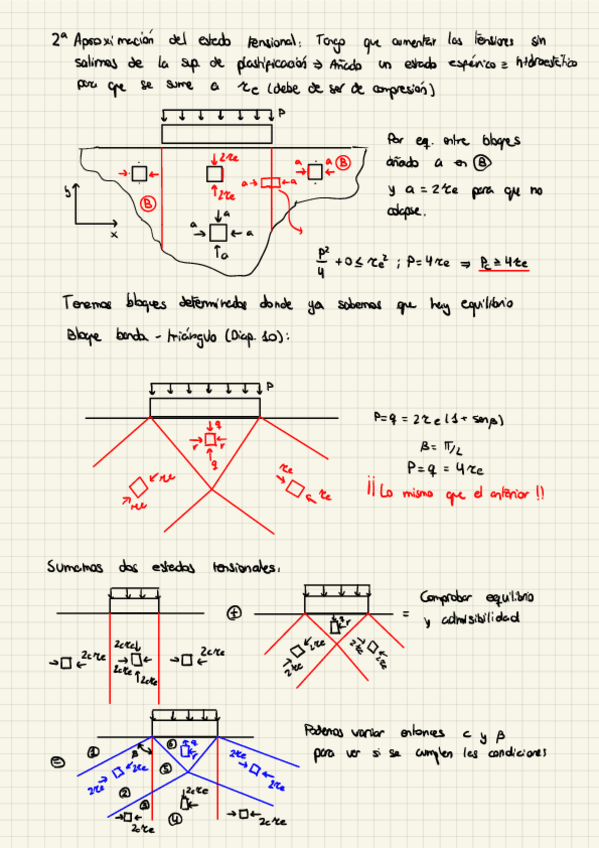 2ª Aproximación del estado tensional: Tengo que aumentar las tensiones sin
salirnos de la sup. de plastificación ⇒ Añado un estado esférico ≡ hidrostático
para que se sume a τe (debe de ser de compresión)
P
Por eq. entre bloques
añado a en Ⓑ
y a = 2τe para que no
colapse.
2τe
2τe
a
a
Ⓑ
Ⓑ
a
a
y
x
a
a
a
a
P²/4 + 0 ≤ τe² ; P = 4τe ⇒ Pc ≥ 4τe
Tenemos bloques determinados donde ya sabemos que hay equilibrio
Bloque banda - triángulo (Diap. 10):
P
q
r
r
q
τe
τe
τe
τe
P = q = 2τe (1 + senβ)
β = π/2
P = q = 4τe
¡¡Lo mismo que el anterior!!
Sumamos dos estados tensionales:
2cτe
2cτe
2cτe
2cτe
2cτe
⊕
q
r
2τe
2τe
2τe
2τe
=
Comprobar equilibrio
y admisibilidad
=
①
β
⑥
q
r
2τe
2τe
⑤
2τe
2τe
②
③
2cτe
④
2cτe
2cτe
Podemos variar entonces c y β
para ver si se cumplen las condiciones